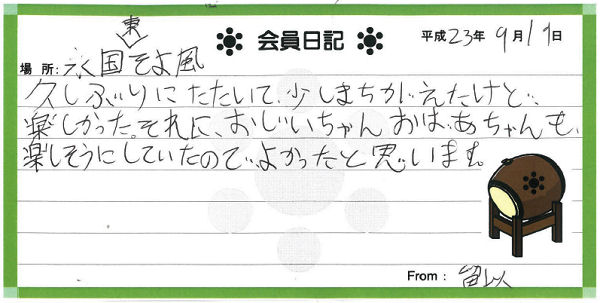 会員日記
平成23年 9月19日
場所:永国東そよ風
久しぶりにたたいて、少しまちがえたけど、
楽しかった。それに、おじいちゃんおばあちゃんも、
楽しそうにしていたのでよかったと思います。
From: